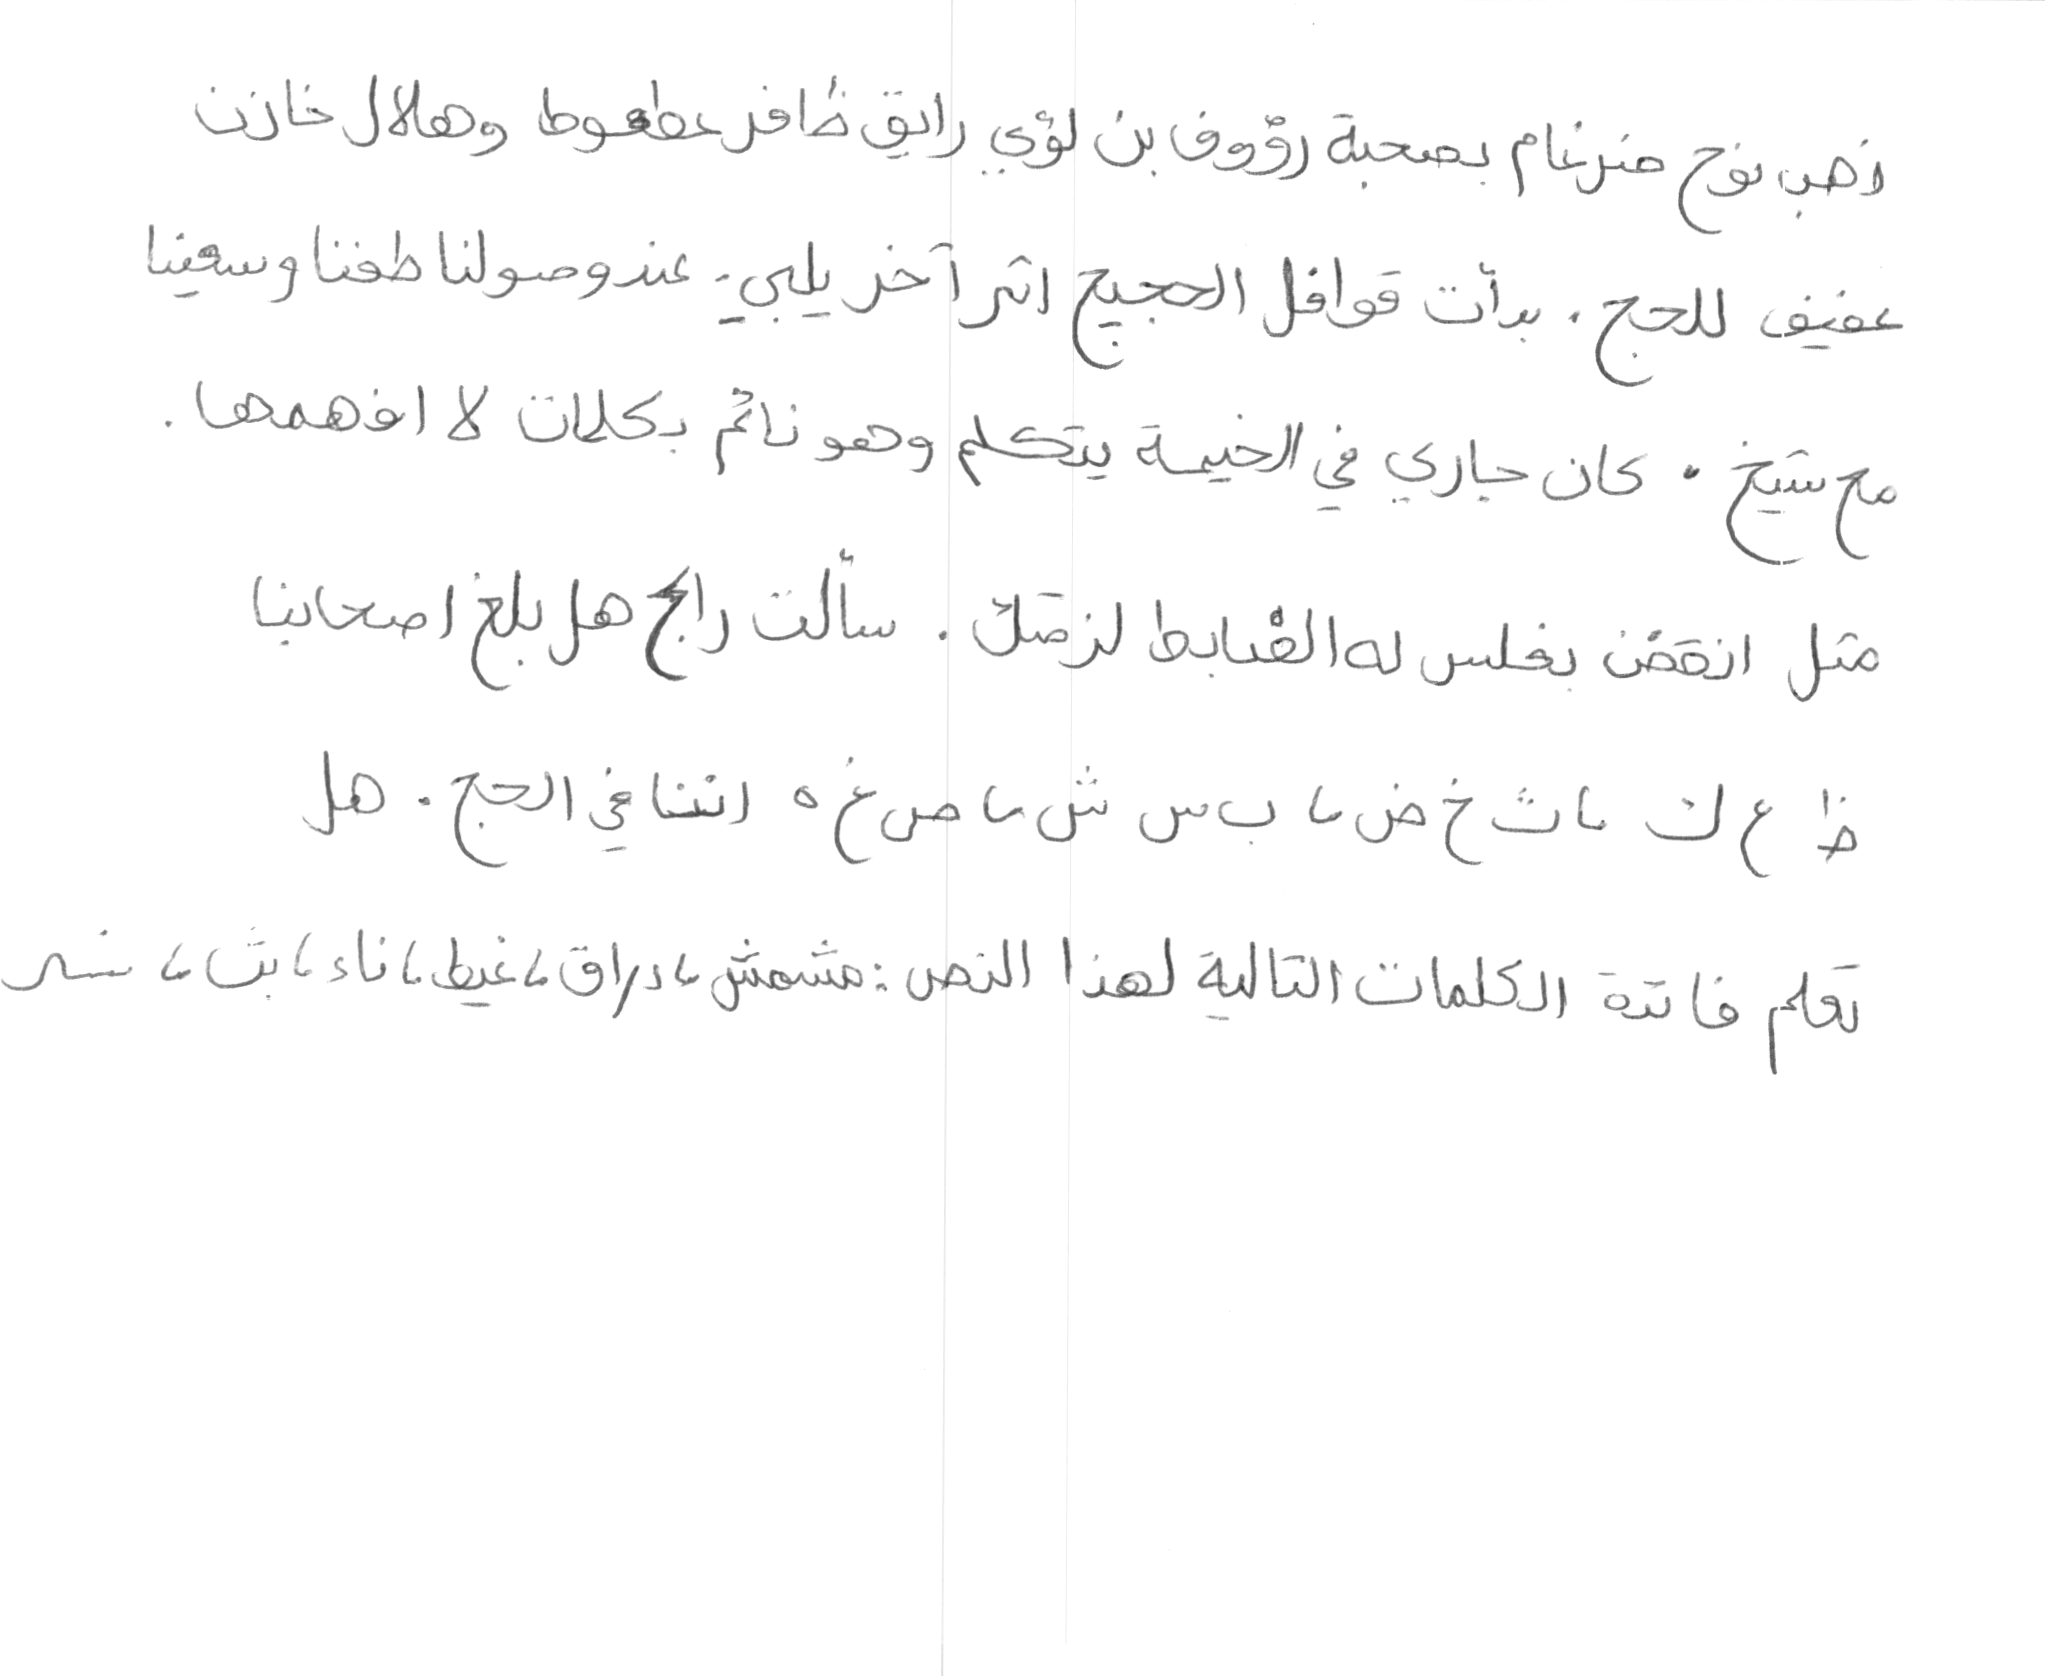 ذهب نوح ضرغام بصحبة رؤوف بن لؤي رايق ظافر عطعوط وهلال خازن
عفيف للحج. بدأت قوافل الحجيج اثر آخر يلبي. عند وصولنا طفنا وسعينا
مع شيخ. كان جاري في الخيمة يتكلم وهو نائم بكلمات لا افهمها.
مثل انقض بغلس له الضابط لزضك. سألت رابح هل بلغ اصحابنا
ظ ع ك ، ث خ ض ، ب س ش ، ص غ ه اثنا في الحج. هل
تعلم فائدة الكلمات التالية لهذا النص: مشمش، دراق، غيط، ناء، بث، نسر